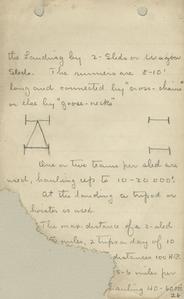 the Landing by 2-Sleds or Wagon
Sleds. The runners are 8-10'
long and connected by "cross-chains"
or else by "goose-necks"
One or two teams per sled are
used, hauling up to 10-20000'.
At the landing a tripod or
hoister is used.
The max distance of a 2-sled
miles, 2 trips a day of 10
distances 100 M.
5-6 miles per
hauling 40-60 M.